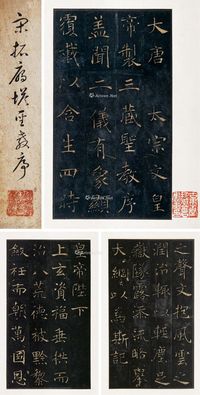 宋拓雁塔聖教序
大唐 太宗文皇
帝製三藏聖教序
盖聞二儀有象顯
覆載以含生四時
之聲文抱風雲之
潤治輒以輕塵足
嶽墜露添流略舉
大綱以為斯記
皇帝陛下
上玄資福垂拱而
治八荒德被黔黎
斂衽而朝萬國恩